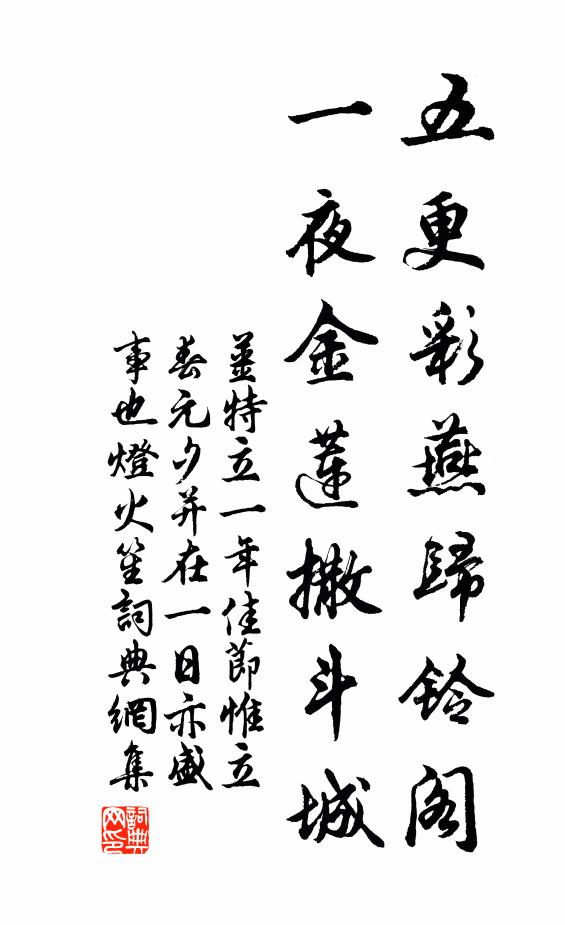 五更彩燕歸鈴阁
一夜金蓮撒斗城
姜特立一年佳節惟立
春元夕并在一日亦盛
事也燈火笙詞典網集
詞典网印